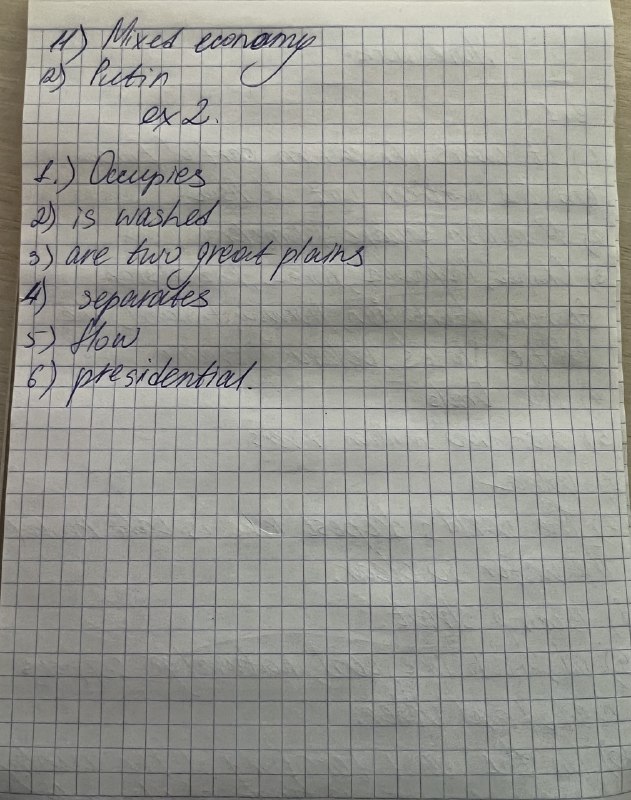 11) Mixed economy
12) Putin
ex 2.
1.) Occupies
2) is washed
3) are two great plains
4) separates
5) flow
6) presidential.